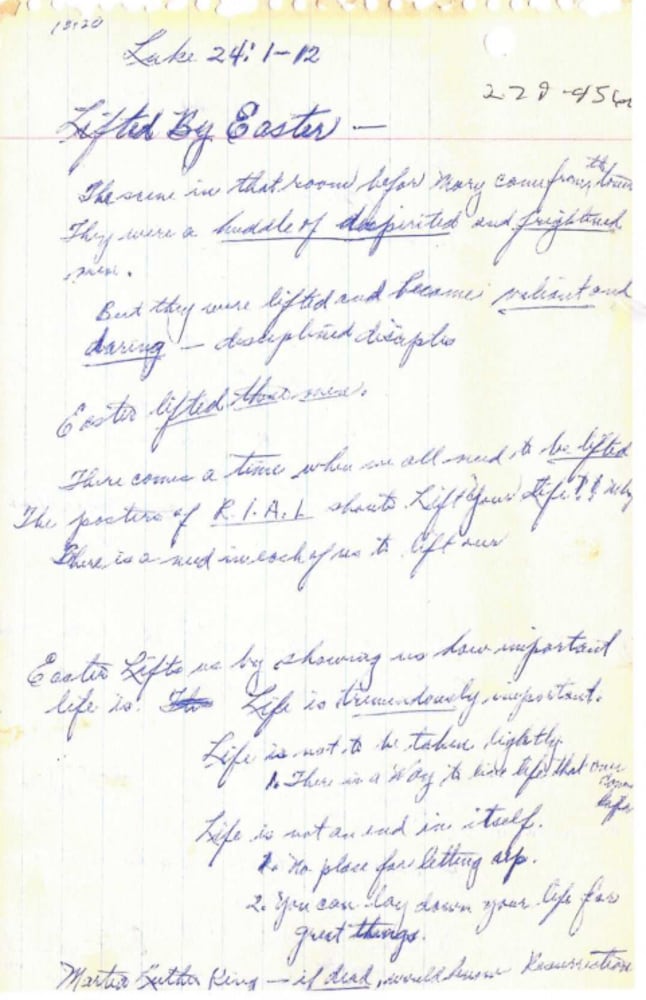 Luke 24: 1-12
Lifted By Easter —
The scene in that room before Mary comes from the tomb
They were a huddle of dispirited and frightened
men.
But they were lifted and became valiant and
daring — disciplined disciples
Easter lifted those men.
There comes a time when we all need to be lifted
The posters of R.I.A.L shouts Lift Your Life!! Why
There is a need in each of us to lift our
Easter Lifts us by showing us how important
life is. Life is tremendously important.
Life is not to be taken lightly.
1. There is a Way to live life that
Life is not an end in itself.
1. No place for letting up.
2. You can lay down your life for
great things.
Martin Luther King — if dead, would know Resurrection